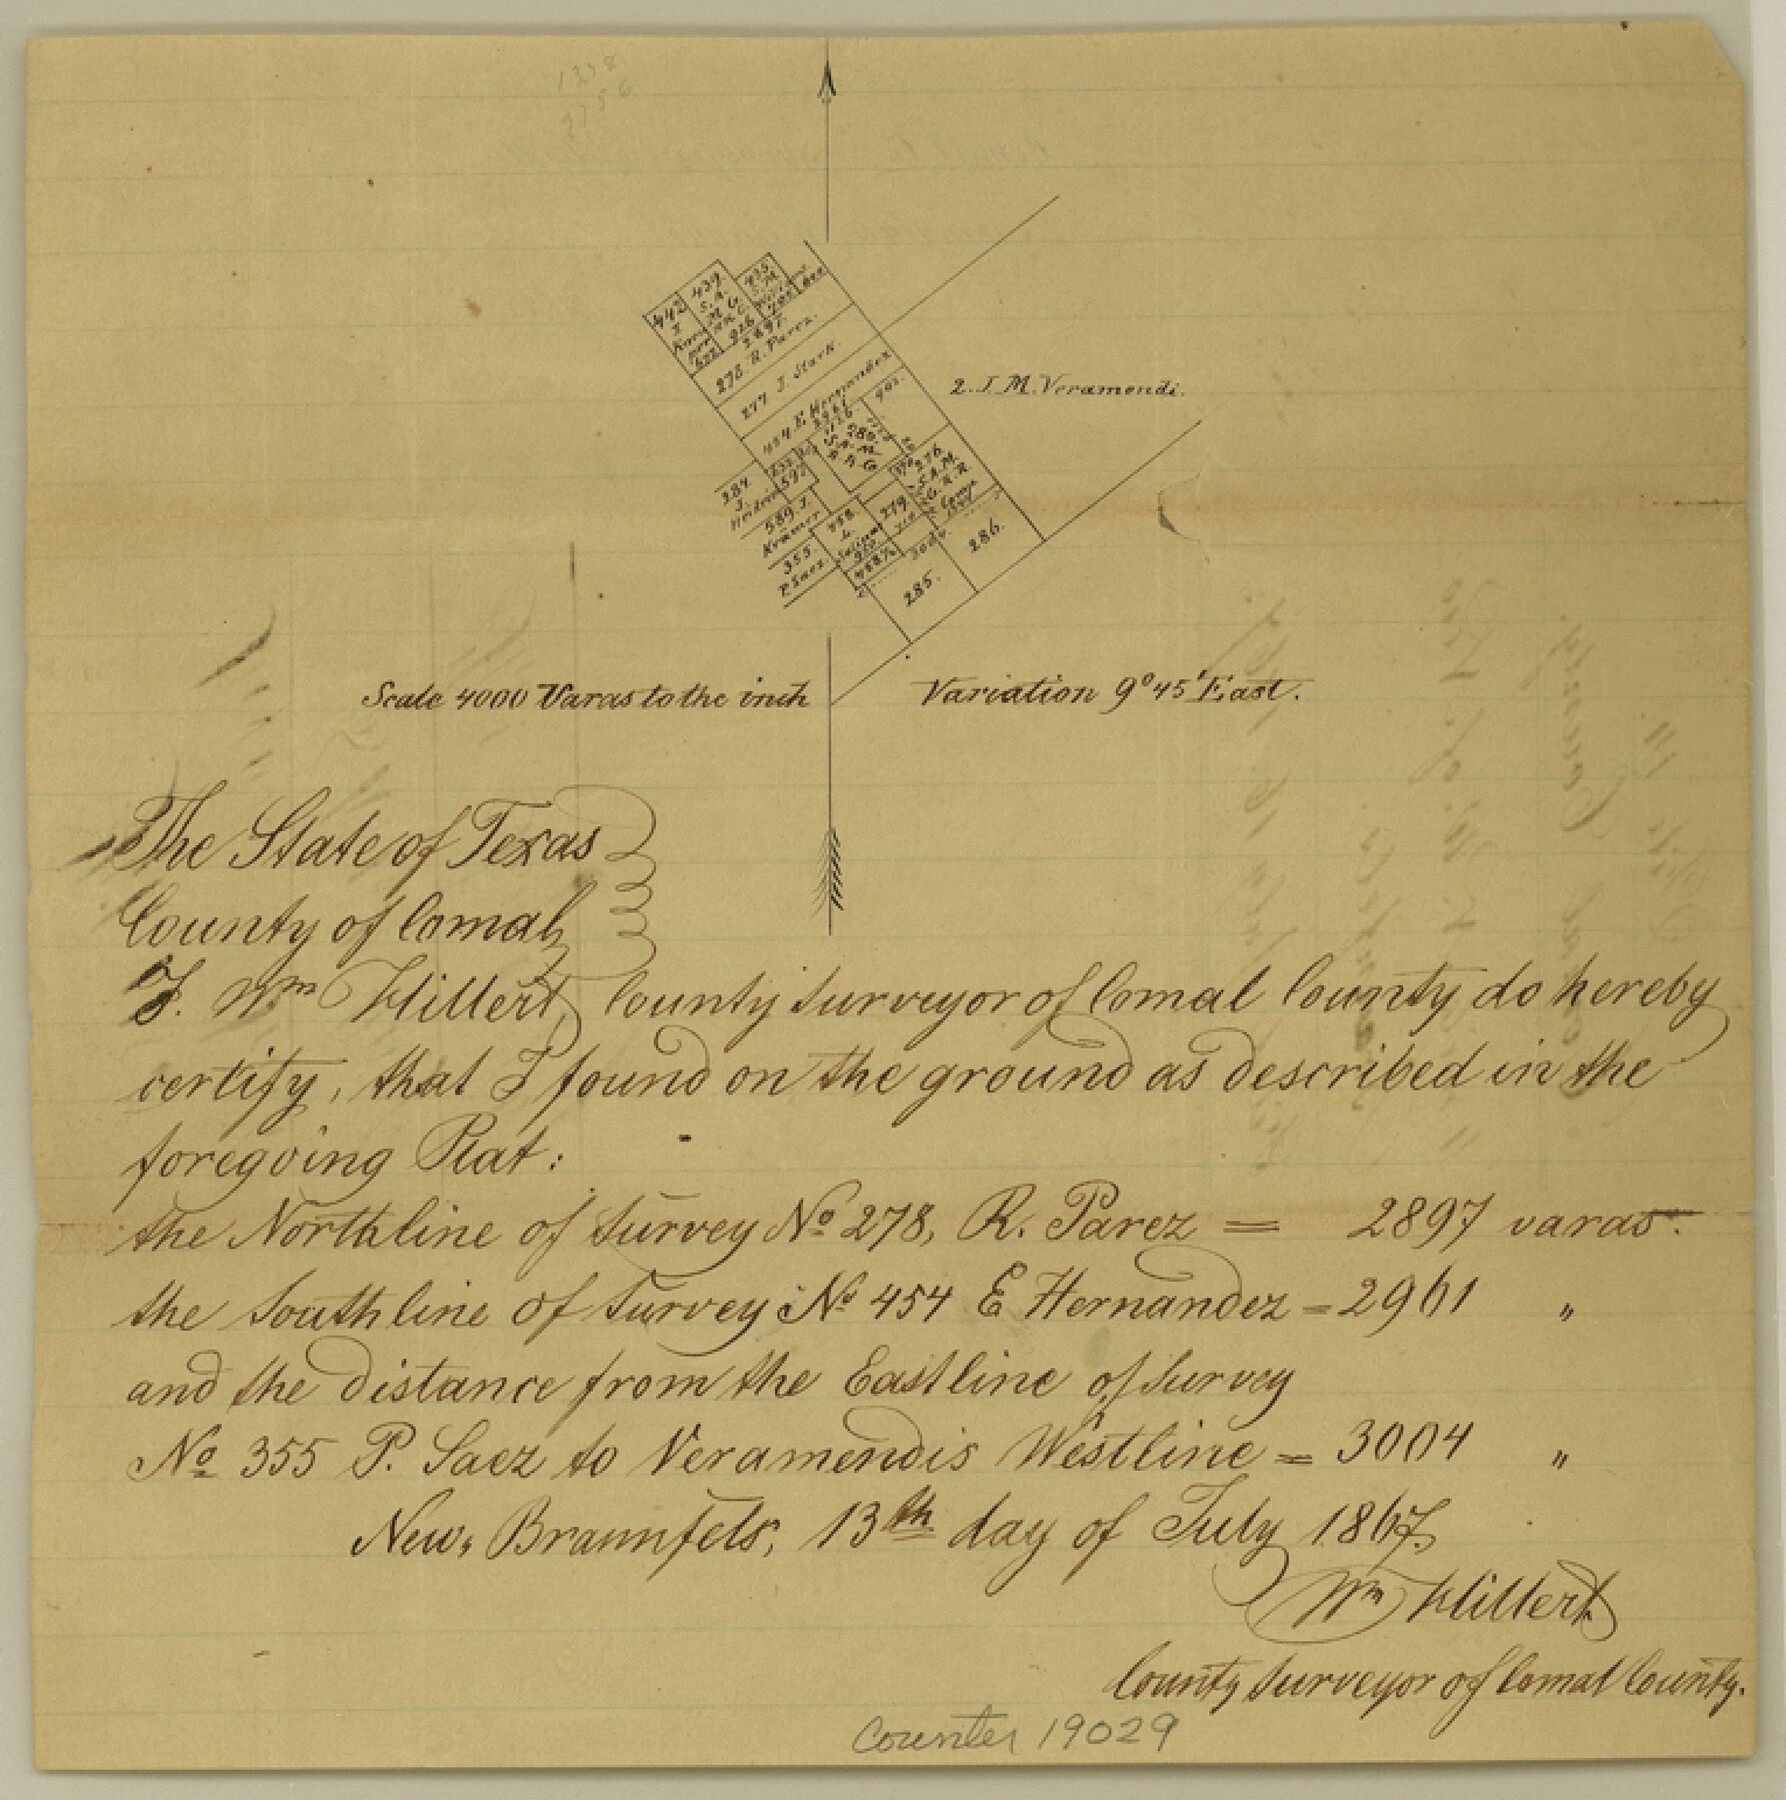 1338
442
I
439.
S. A.
M. G.
R.R.C.
926
435
S.
M.
2897.
278. R. Parez.
277 J. Stark.
454 E. Hernandez
2961
902.
280.
S. A. M.
R. R. G
597
276
S. A. M.
G. R. R.
284
J.
589 J.
Kramer
355
P. Saez.
279
3004
286.
285.
2. J. M. Veramendi.
Scale 4000 Varas to the inch
Variation 9° 45' East.
The State of Texas
County of Comal
I. Wm Hillert, County Surveyor of Comal County do hereby
certify, that I found on the ground as described in the
foregoing Plat:
the Northline of Survey No 278, R. Parez = 2897 varas.
the Southline of Survey No 454 E Hernandez = 2961 "
and the distance from the Eastline of Survey
No 355 P. Saez to Veramendis Westline = 3004 "
New, Braunfels, 13th day of July 1867.
Wm Hillert
County Surveyor of Comal County.
Counter 19029